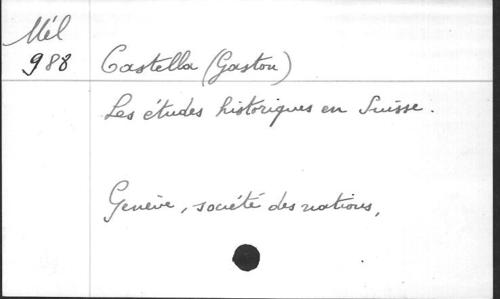 Mél
988 Castella (Gaston)
Les études historiques en Suisse.
Genève, société des nations,